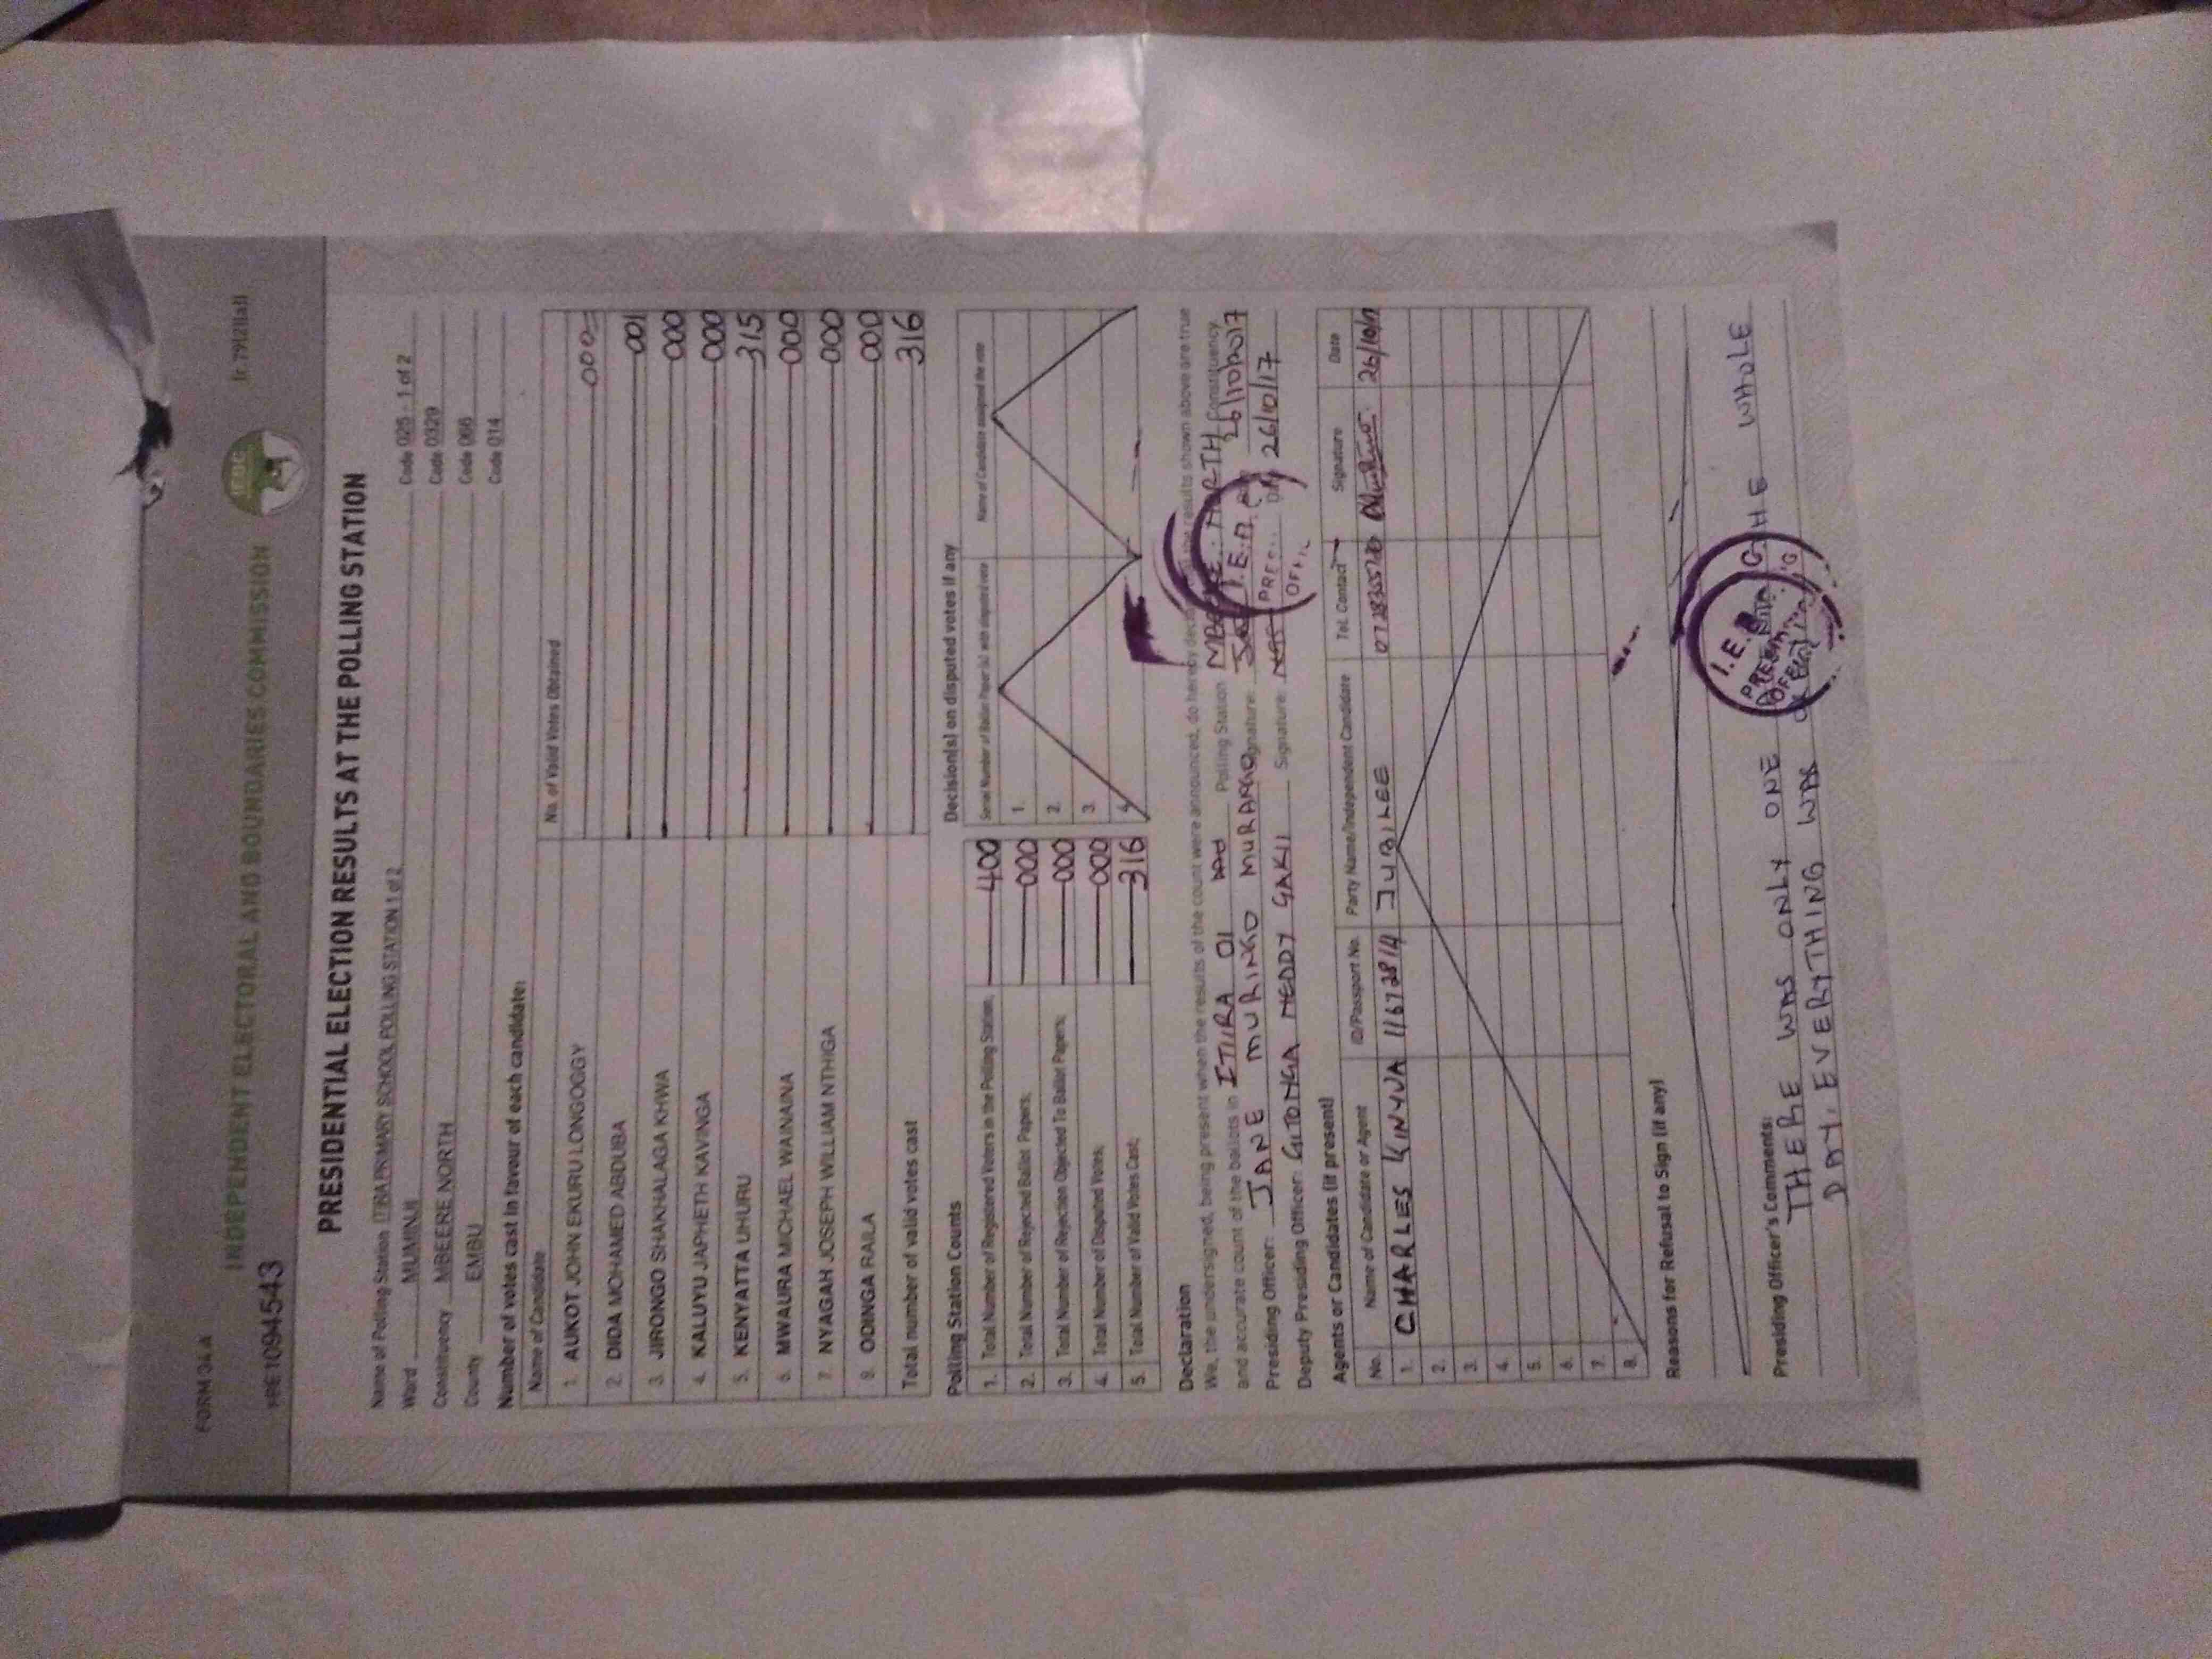 FORM 34A
INDEPENDENT ELECTORAL AND BOUNDARIES COMMISSION
(r.79(2)(a))
IEBC
PRE1094543
PRESIDENTIAL ELECTION RESULTS AT THE POLLING STATION
Name of Polling Station ITIIRA PRIMARY SCHOOL POLLING STATION 1 of 2 Code 025 - 1 of 2
Ward MUMINJI Code 0329
Constituency MBEERE NORTH Code 066
County EMBU Code 014
Number of votes cast in favour of each candidate:
Name of Candidate No. of Valid Votes Obtained
1. AUKOT JOHN EKURU LONGOGGY 000
2. DIDA MOHAMED ABDUBA 001
3. JIRONGO SHAKHALAGA KHWA 000
4. KALUYU JAPHETH KAVINGA 000
5. KENYATTA UHURU 315
6. MWAURA MICHAEL WAINAINA 000
7. NYAGAH JOSEPH WILLIAM NTHIGA 000
8. ODINGA RAILA 000
Total number of valid votes cast 316
Polling Station Counts
1. Total Number of Registered Voters in the Polling Station; 400
2. Total Number of Rejected Ballot Papers; 000
3. Total Number of Rejection Objected To Ballot Papers; 000
4. Total Number of Disputed Votes; 000
5. Total Number of Valid Votes Cast; 316
Decision(s) on disputed votes if any
Serial Number of Ballot Paper (s) with disputed vote Name of Candidate assigned the vote
1.
2.
3.
4.
Declaration
We, the undersigned, being present when the results of the count were announced, do hereby declare the results shown above are true
and accurate count of the ballots in ITIIRA 01 Polling Station MBEERE NORTH Constituency.
Presiding Officer: JANE MURINGO MURANGO Signature: 26/10/2017
Deputy Presiding Officer: GITONGA HEDDY GAKII Signature: Date 26/10/17
Agents or Candidates (if present)
No. Name of Candidate or Agent ID/Passport No. Party Name/Independent Candidate Tel. Contact Signature Date
1. CHARLES KINYUA 11672814 JUBILEE 26/10/17
2.
3.
4.
5.
6.
7.
8.
Reasons for Refusal to Sign (if any)
Presiding Officer's Comments:
THERE WAS ONLY ONE THE WHOLE
DAY, EVERYTHING WAS